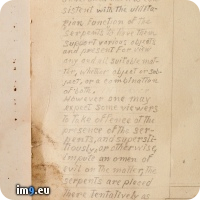 sistent with the undula-
sion function of the
serpents is low this
support various objects
and present for view
any and all suitable mat-
ter, whether object or sub-
ject, or a combination
of both.
However one may
expect some viewers
to take offence at the
presence of the ser-
pents, and supersti-
tiously, or otherwise,
impute an omen of
evil on the matter, the
serpents are placed
here tentatively as
im9.eu